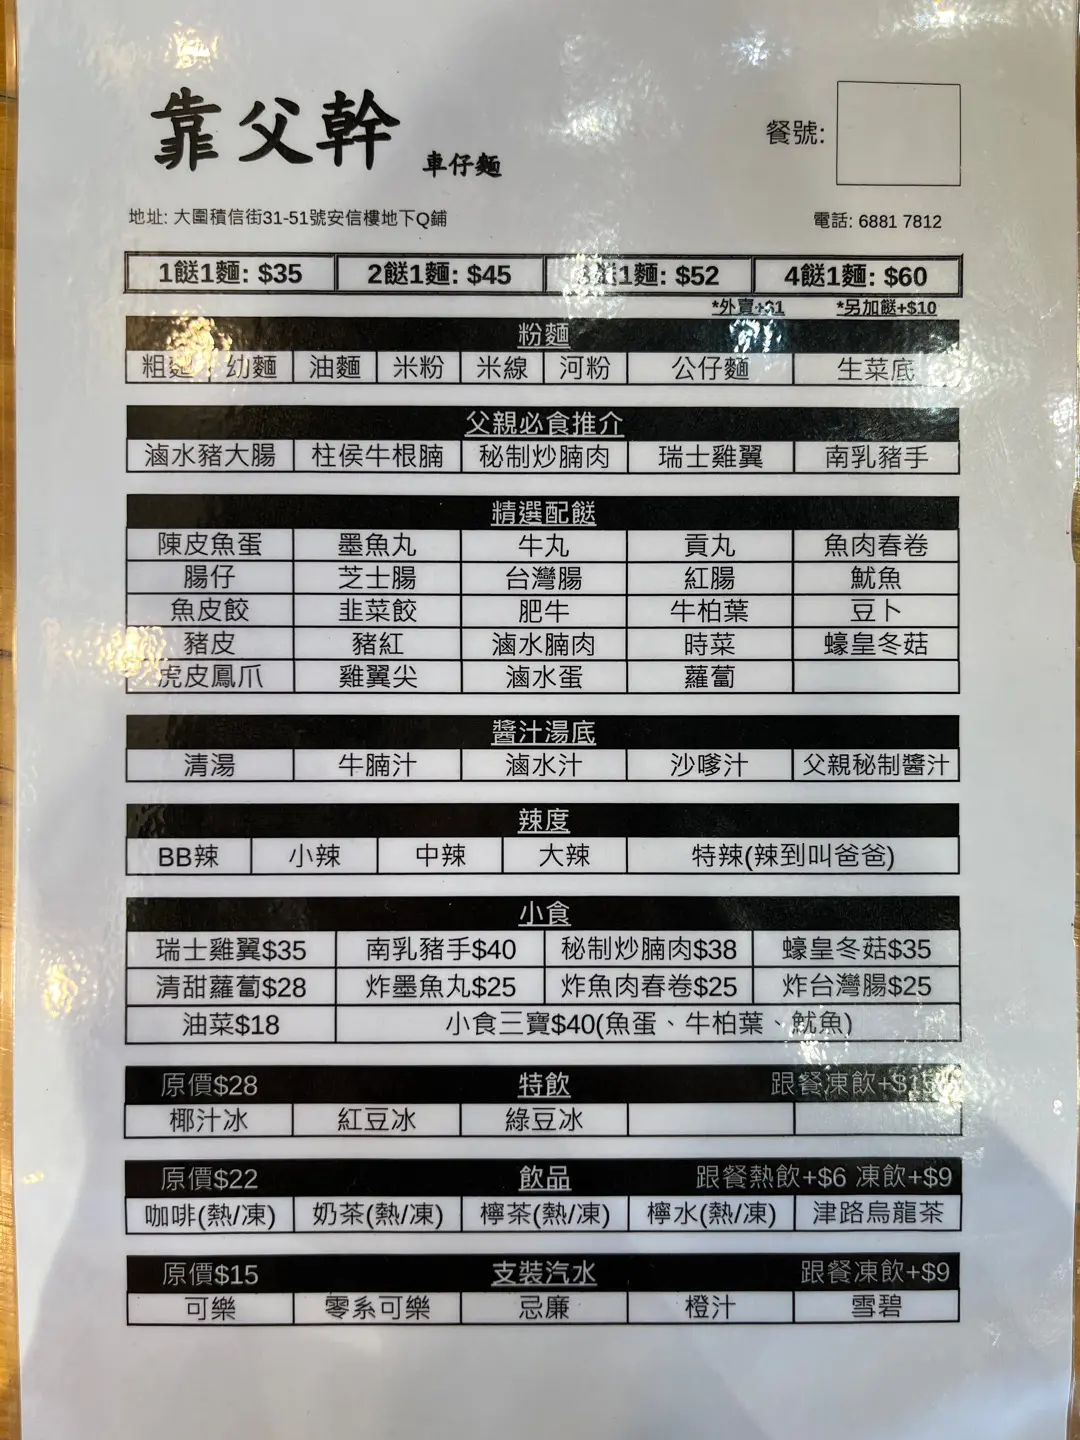 靠父幹 車仔麵
餐號:
地址: 大圍積信街31-51號安信樓地下Q鋪
電話: 6881 7812
1餸1麵: $35 2餸1麵: $45 1麵: $52 4餸1麵: $60
*外賣+$1 *另加餸+$10
粉麵
粗麵 幼麵 油麵 米粉 米線 河粉 公仔麵 生菜底
父親必食推介
滷水豬大腸 柱侯牛根腩 秘制炒腩肉 瑞士雞翼 南乳豬手
精選配餸
陳皮魚蛋 墨魚丸 牛丸 貢丸 魚肉春卷
腸仔 芝士腸 台灣腸 紅腸 魷魚
魚皮餃 韭菜餃 肥牛 牛柏葉 豆卜
豬皮 豬紅 滷水腩肉 時菜 蠔皇冬菇
虎皮鳳爪 雞翼尖 滷水蛋 蘿蔔
醬汁湯底
清湯 牛腩汁 滷水汁 沙嗲汁 父親秘制醬汁
辣度
BB辣 小辣 中辣 大辣 特辣(辣到叫爸爸)
小食
瑞士雞翼$35 南乳豬手$40 秘制炒腩肉$38 蠔皇冬菇$35
清甜蘿蔔$28 炸墨魚丸$25 炸魚肉春卷$25 炸台灣腸$25
油菜$18 小食三寶$40(魚蛋、牛柏葉、魷魚)
原價$28 特飲 跟餐凍飲
椰汁冰 紅豆冰 綠豆冰
原價$22 飲品 跟餐熱飲+$6 凍飲+$9
咖啡(熱/凍) 奶茶(熱/凍) 檸茶(熱/凍) 檸水(熱/凍) 津路烏龍茶
原價$15 支裝汽水 跟餐凍飲+$9
可樂 零系可樂 忌廉 橙汁 雪碧